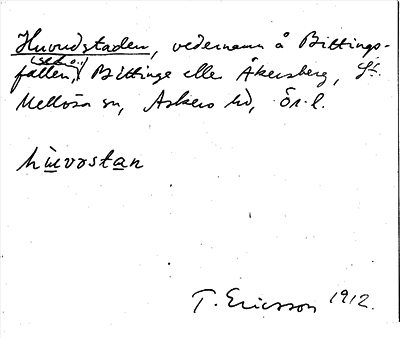 Huvudstaden, vedernamn å Bittings-
fallen, Bittinge eller Åkersberg, St.
Mellösa sn, Askers hd, Ör. l.
huvostan
T. Ericsson 1912.